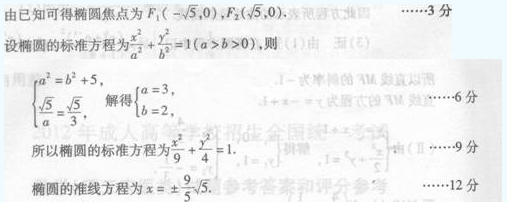 由已知可得椭圆焦点为 F₁(-√5,0),F₂(√5,0). ……3 分
设椭圆的标准方程为x²/a²+y²/b²=1(a>b>0),则
{a²=b²+5, √5/a=√5/3, 解得{a=3, b=2, ……6 分
所以椭圆的标准方程为x²/9+y²/4=1. ……9 分
椭圆的准线方程为 x=±9/5√5. ……12 分